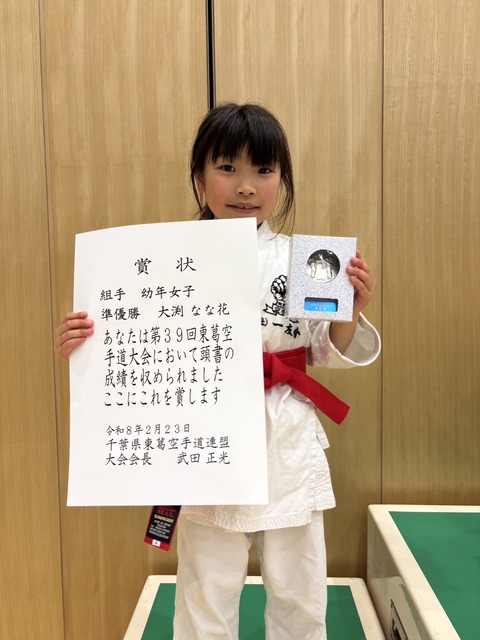 賞 状
組手 幼年女子
準優勝 大渕 なな花
あなたは第39回東葛空
手道大会において頭書の
成績を収められました
ここにこれを賞します
令和8年2月23日
千葉県東葛空手道連盟
大会会長 武田 正光